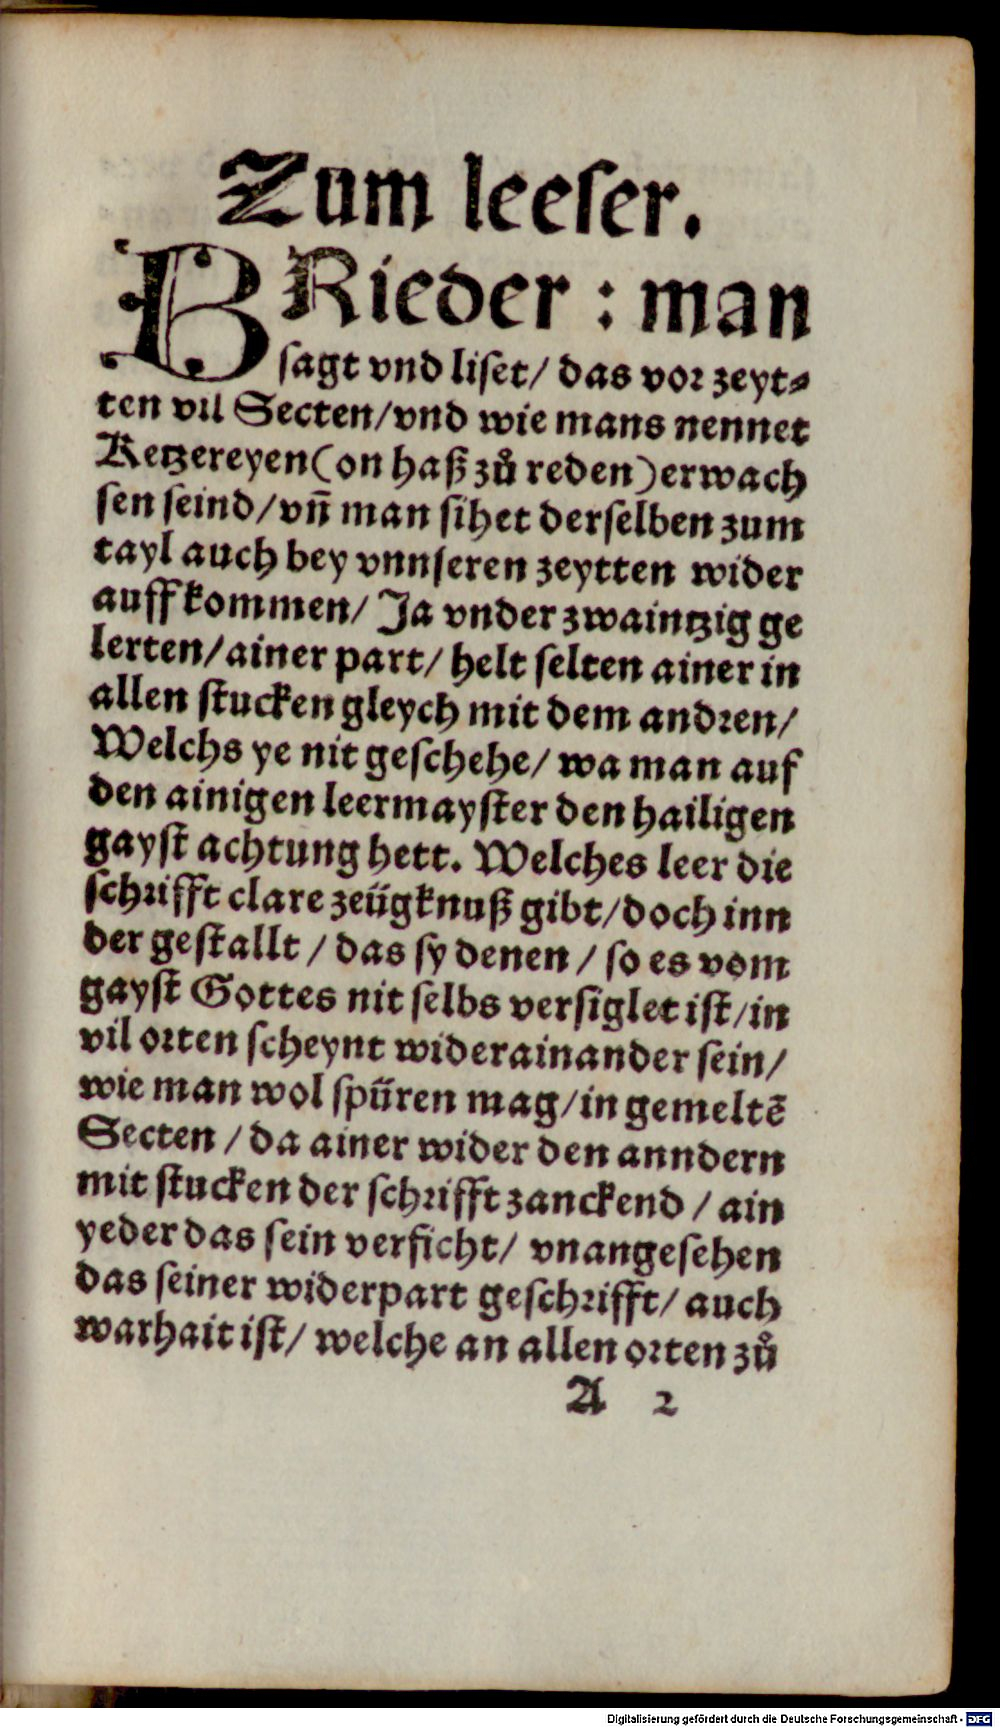 Zum leeser.
BRieder : man
sagt vnd liset/ das vor zeyt⸗
ten vil Secten/vnd wie mans nennet
Ketzereyen(on haß zů reden)erwach
sen seind/vñ man sihet derselben zum
tayl auch bey vnnseren zeytten wider
auffkommen/ Ja vnder zwaintzig ge
lerten/ainer part/ helt selten ainer in
allen stucken gleych mit dem andren/
Welchs ye nit geschehe/ wa man auf
den ainigen leermayster den hailigen
gayst achtung hett. Welches leer die
schrifft clare zeügknuß gibt/doch inn
der gestallt / das sy denen / so es vom
gayst Gottes nit selbs versiglet ist/in
vil orten scheynt widerainander sein/
wie man wol spüren mag/in gemeltẽ
Secten / da ainer wider den anndern
mit stucken der schrifft zanckend / ain
yeder das sein verficht/ vnangesehen
das seiner widerpart geschrifft/ auch
warhait ist/ welche an allen orten zů
A 2
Digitalisierung gefördert durch die Deutsche Forschungsgemeinschaft - DFG